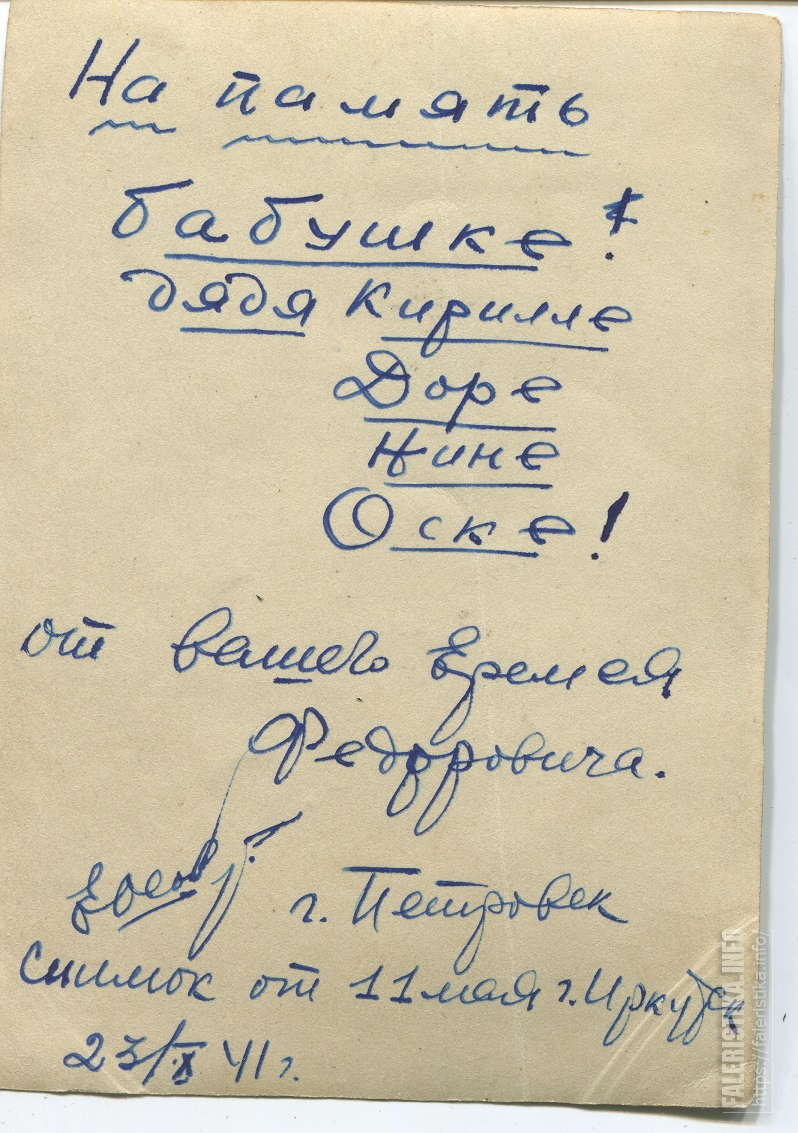 На память
бабушке!
дядя Кирилле
Доре
Нине
Оске!
от вашего Еремея
Федоровича.
г. Петровск
Снимок от 11 мая г. Иркутск
23/X 41 г.
FALERISTIKA.INFO
https://faleristika.info/